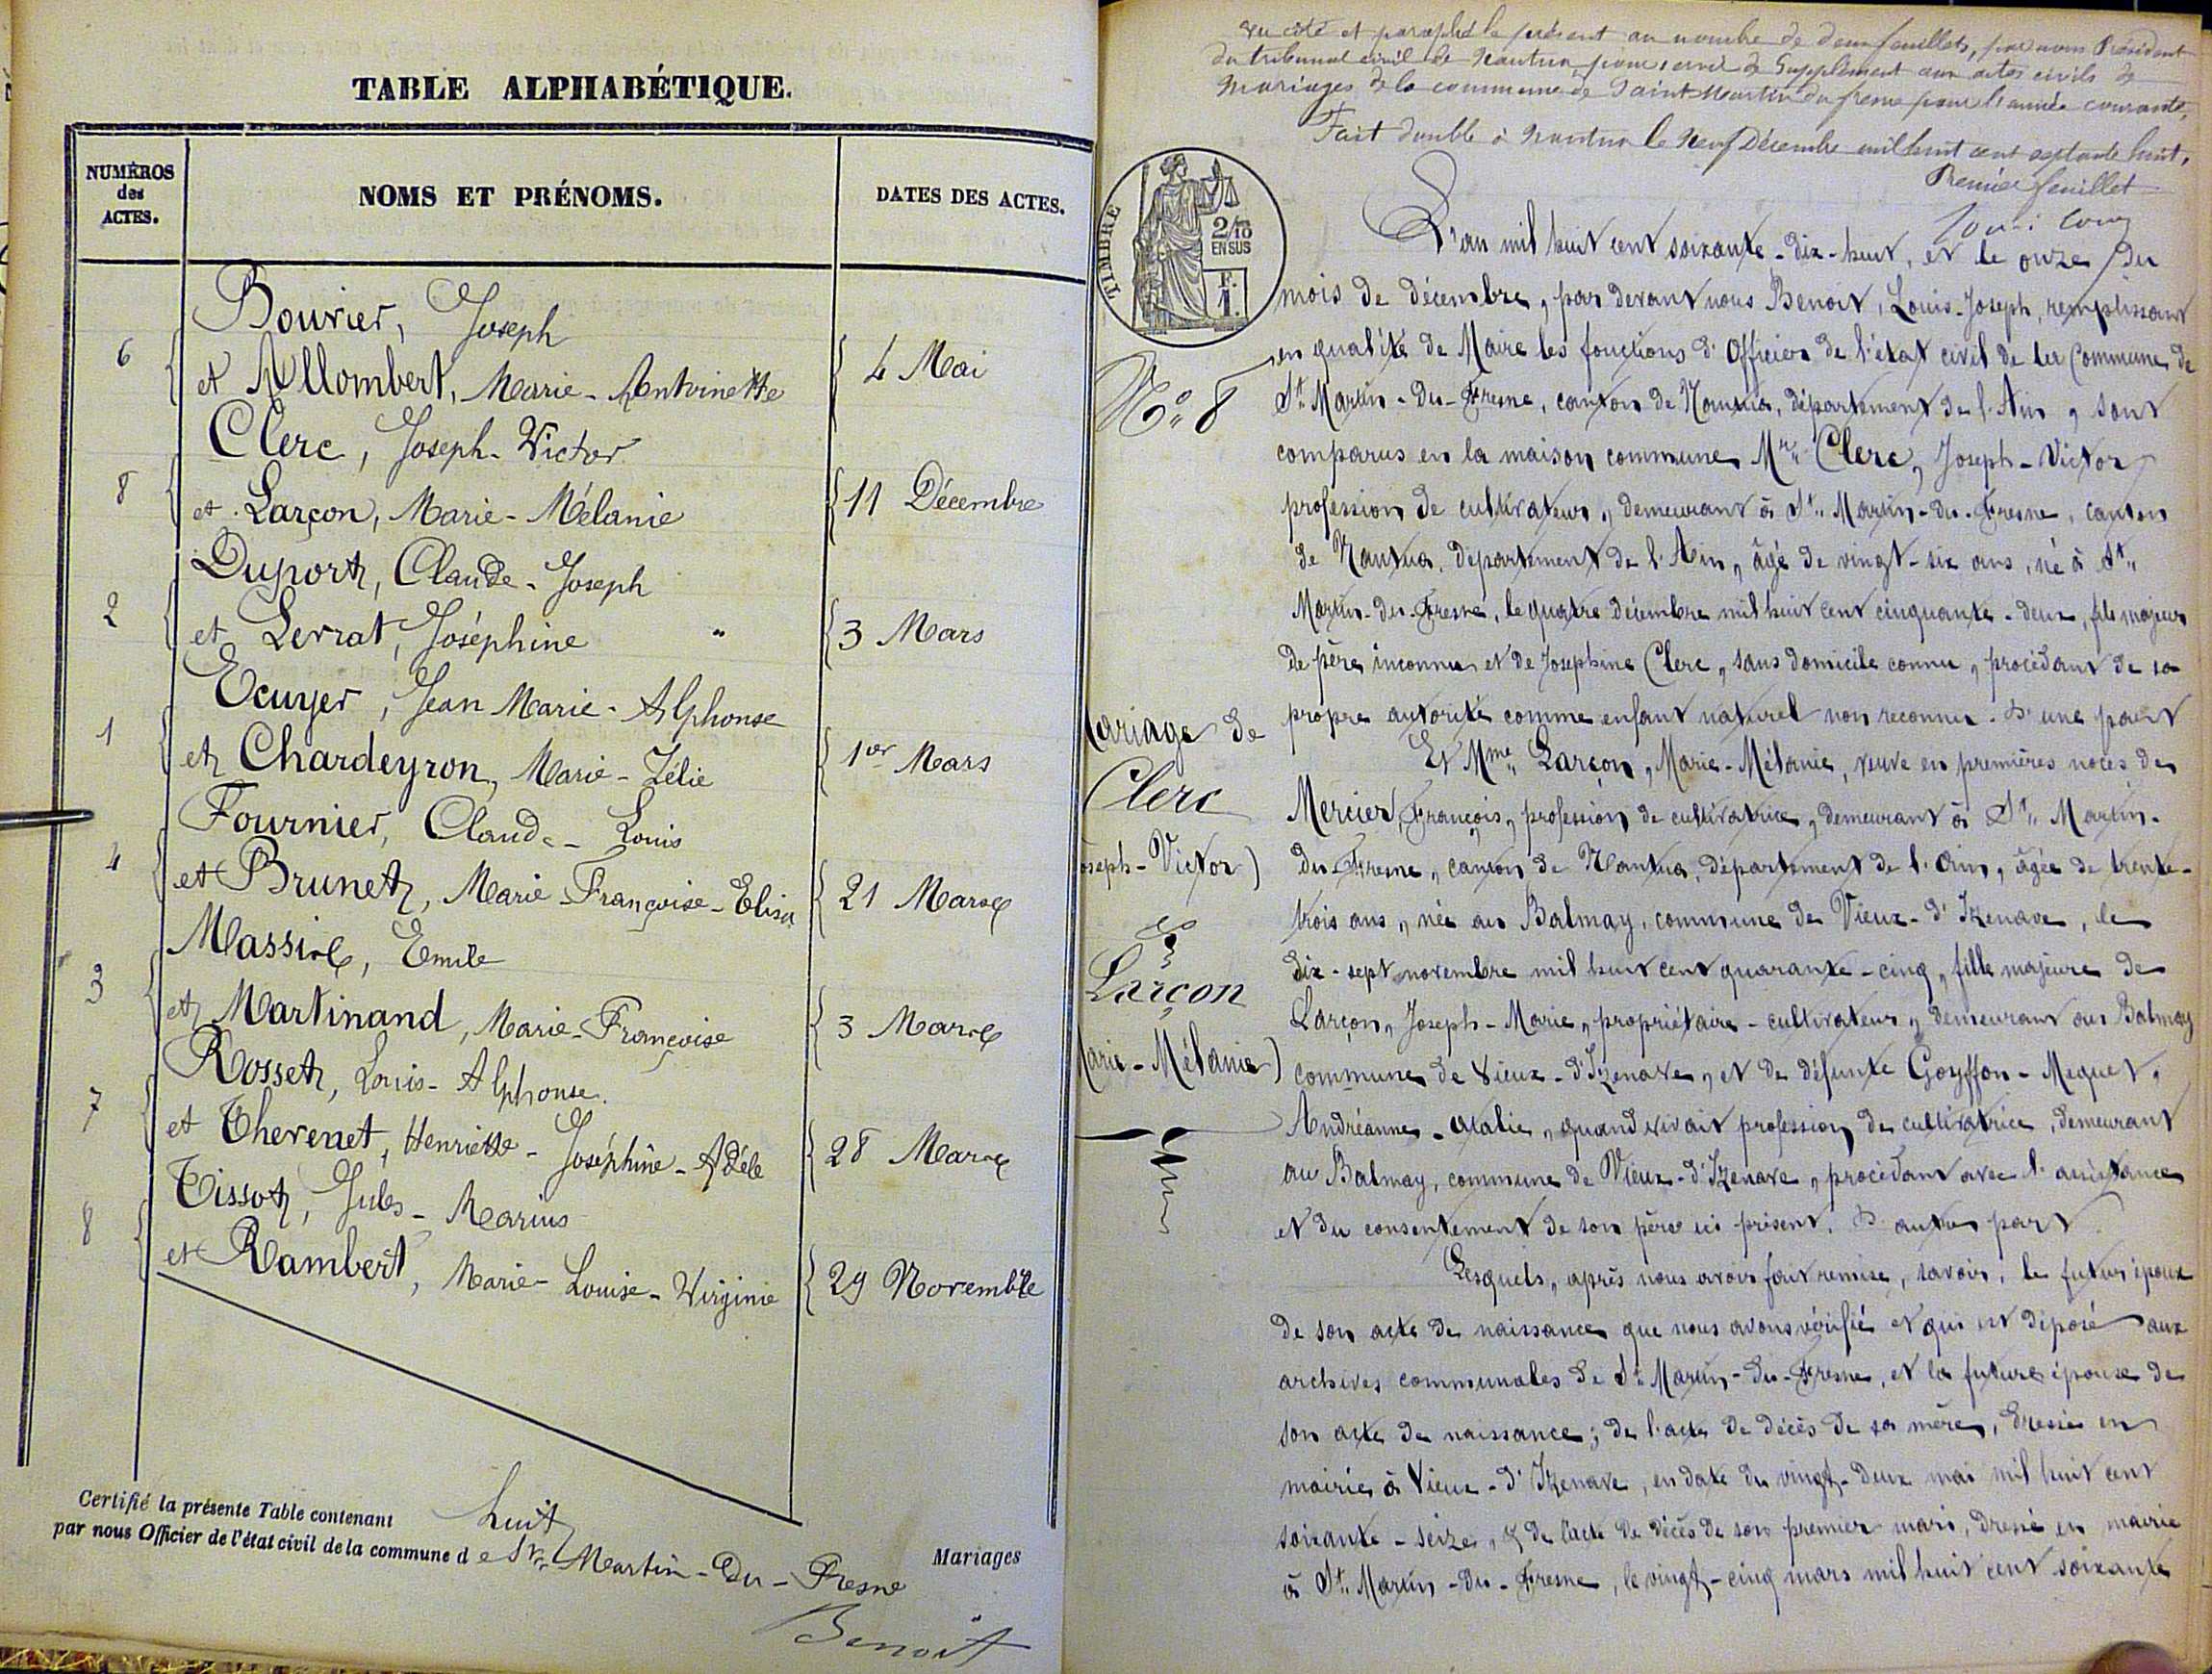 TABLE ALPHABÉTIQUE.
NUMÉROS des ACTES.
NOMS ET PRÉNOMS.
DATES DES ACTES.
Bouvier, Joseph
6 et Allombert, Marie-Antoinette 4 Mai
Clerc, Joseph-Victor
8 et Larçon, Marie-Mélanie 11 Décembre
Duport, Claude-Joseph
2 et Levrat, Joséphine " 3 Mars
Ecuyer, Jean Marie-Alphonse
1 et Chardeyron, Marie-Zélie 1er Mars
Fournier, Claude-Louis
4 et Brunet, Marie-Françoise-Elisa 21 Mars
Massire, Emile
3 et Martinand, Marie-Françoise 3 Mars
Rosset, Louis-Alphonse.
7 et Thevenet, Henriette-Joséphine-Adèle 28 Mars
Tissot, Jules-Marius
8 et Rambert, Marie-Louise-Virginie 29 Novembre
Certifié la présente Table contenant huit Mariages
par nous Officier de l'état civil de la commune de St. Martin-Du-Fresne
Benoit
Vu coté et paraphé le présent au nombre de deux feuillets, par nous Président
du tribunal civil de Nantua pour servir de Supplément aux actes civils de
Mariages de la commune de Saint Martin du fresne pour l'année courante,
Fait double à Nantua le Neuf Décembre mil huit cent septante huit,
Premier feuillet
TIMBRE
2/10 EN SUS
F. 1.
L'an mil huit cent soixante-dix-huit, et le onze du
mois de décembre, par devant nous Benoit, Louis-Joseph, remplissant
en qualité de Maire les fonctions d'Officier de l'état civil de la Commune de
N° 8
St. Martin-du-Fresne, canton de Nantua, département de l'Ain, sont
comparus en la maison commune Mr. Clerc, Joseph-Victor
profession de cultivateur, demeurant à St. Martin-du-Fresne, canton
de Nantua, département de l'Ain, âgé de vingt-six ans, né à St.
Martin-du-Fresne, le quatre décembre mil huit cent cinquante-deux, fils majeur
de père inconnu et de Josephine Clerc, sans domicile connu, procédant de sa
propre autorité comme enfant naturel non reconnu. D'une part
Mariage de
Clerc
Joseph-Victor)
&
Larçon
Marie-Mélanie)
Et Mme Larçon, Marie-Mélanie, veuve en premières noces de
Mercier, François, profession de cultivatrice, demeurant à St. Martin-
du-Fresne, canton de Nantua, département de l'Ain, âgée de trente-
trois ans, née au Balmay, commune de Vieux-d'Izenave, le
dix-sept novembre mil huit cent quarante-cinq, fille majeure de
Larçon, Joseph-Marie, propriétaire-cultivateur, demeurant au Balmay
commune de Vieux-d'Izenave, et de défunte Goyffon-Maquet,
Andréanne-Atalie, quand vivait profession de cultivatrice, demeurant
au Balmay, commune de Vieux-d'Izenave, procédant avec l'assistance
et du consentement de son père ici présent. D'autre part
Lesquels, après nous avoir fait remise, savoir, le futur époux
de son acte de naissance que nous avons vérifié et qui est déposé aux
archives communales de St. Martin-du-Fresne, et la future épouse de
son acte de naissance; de l'acte de décès de sa mère, dressé en
mairie à Vieux-d'Izenave, en date du vingt-deux mai mil huit cent
soixante-seize, & de l'acte de décès de son premier mari, dressé en mairie
à St. Martin-du-Fresne, le vingt-cinq mars mil huit cent soixante